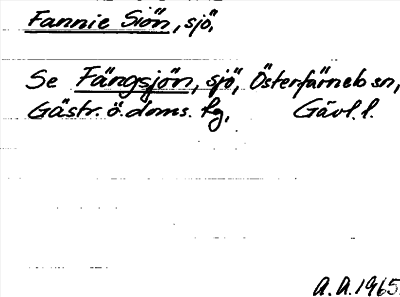 Fannie Siön, sjö,
Se Fängsjön, sjö, Österfärnebo sn,
Gästr. ö. doms. fg, Gävl. l.
A.A. 1965.